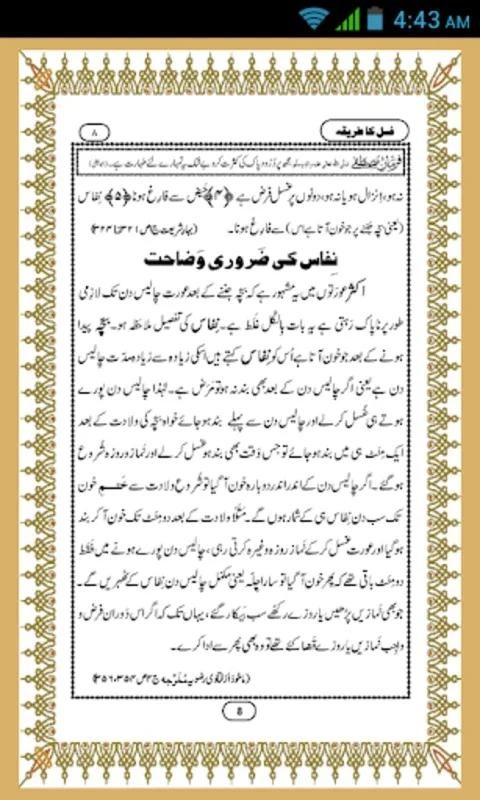 4:43 AM
غسل کا طریقہ
۸
نہ ہو، اِنزال ہو یا نہ ہو، دونوں پر غسل فرض ہے ﴿۴﴾ حَیض سے فارِغ ہونا ﴿۵﴾ نِفاس
(یعنی بچہ جَننے پر جو خون آتا ہے اس) سے فارِغ ہونا۔ (بہارِ شریعت ج۱ ص۳۲۱ تا ۳۲۴)
نِفاس کی ضَروری وَضاحت
اکثر عورَتوں میں یہ مشہور ہے کہ بچّہ جننے کے بعد عورت چالیس دن تک لازمی
طور پر ناپاک رَہتی ہے یہ بات بالکل غَلَط ہے۔ نِفاس کی تفصیل مُلاحَظہ ہو۔ بچّہ پیدا
ہونے کے بعد جو خون آتا ہے اُس کو نِفاس کہتے ہیں اسکی زیادہ سے زیادہ مدّت چالیس
دن ہے یعنی اگر چالیس دن کے بعد بھی بند نہ ہو تو مَرَض ہے۔ لہٰذا چالیس دن پورے
ہوتے ہی غُسل کر لے اور چالیس دن سے پہلے بند ہو جائے خواہ بچّہ کی ولادت کے بعد
ایک مِنَٹ ہی میں بند ہو جائے تو جس وَقت بھی بند ہو غسل کر لے اور نَماز و روزہ شروع
ہو گئے۔ اگر چالیس دن کے اندر اندر دوبارہ خون آ گیا تو شُروعِ ولادت سے ختمِ خون
تک سب دن نِفاس ہی کے شمار ہوں گے۔ مَثَلًا ولادت کے بعد دو مِنَٹ تک خون آ کر بند
ہو گیا اور عورت غسل کر کے نَماز روزہ وغیرہ کرتی رہی، چالیس دن پورے ہونے میں فَقَط
دو مِنَٹ باقی تھے کہ پھر خون آ گیا تو سارا چِلّہ یعنی مکمل چالیس دن نِفاس کے ٹھہریں گے۔
جو بھی نَمازیں پڑھیں یا روزے رکھے سب بیکار گئے، یہاں تک کہ اگر اس دَوران فرض و
واجِب نَمازیں یا روزے قَضا کئے تھے تو وہ بھی پھر سے ادا کرے۔
(ماخوذ از فتاوٰی رضویہ مُخَرَّجہ ج۴ ص۳۵۴، ۳۵۶)
8